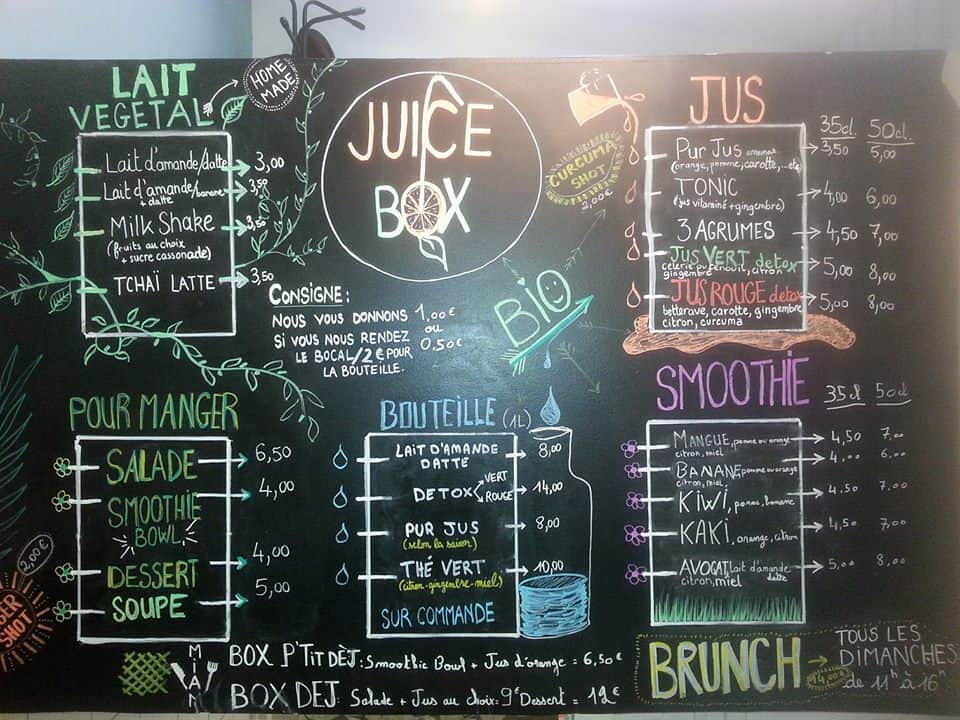 LAIT
VEGETAL
HOME
MADE
Lait d'amande/datte 3,00
Lait d'amande/banane
+ datte 3,50
Milk Shake 3,50
(fruits au choix
+ sucre cassonade)
TCHAÏ LATTE 3,50
JUICE
BOX
CURCUMA
SHOT
2,00€
JUS
35cl. 50cl.
Pur Jus 3,50 5,00
(orange, pomme, carotte, ...etc)
TONIC 4,00 6,00
(jus vitaminé + gingembre)
3 AGRUMES 4,50 7,00
JUS VERT detox 5,00 8,00
celeri, fenouil, citron
gingembre
JUS ROUGE detox 5,00 8,00
betterave, carotte, gingembre
citron, curcuma
CONSIGNE:
NOUS VOUS DONNONS 1,00€
SI VOUS NOUS RENDEZ ou
LE BOCAL/2€ POUR 0,50€
LA BOUTEILLE.
BIO
POUR MANGER
SALADE 6,50
SMOOTHIE 4,00
BOWL
DESSERT 4,00
SOUPE 5,00
2,00€
SHOT
BOUTEILLE (1L)
LAIT D'AMANDE 8,00
DATTE
DETOX VERT 14,00
ROUGE
PUR JUS 8,00
(selon la saison)
THÉ VERT 10,00
(citron-gingembre-miel)
SUR COMMANDE
SMOOTHIE
35cl 50cl
MANGUE, pomme ou orange 4,50 7,00
citron, miel
BANANE, pomme ou orange 4,00 6,00
citron, miel
KIWI, pomme, banane 4.50 7,00
KAKI, orange, citron 4,50 7,00
AVOCAT, lait d'amande 5,00 8,00
citron, miel datte
MIAM
BOX P'TIT DÈJ: Smoothie Bowl + Jus d'orange = 6,50€
BOX DEJ: Salade + Jus au choix = 9€ Dessert = 12€
BRUNCH
14,00€
TOUS LES
DIMANCHES
de 11h à 16h